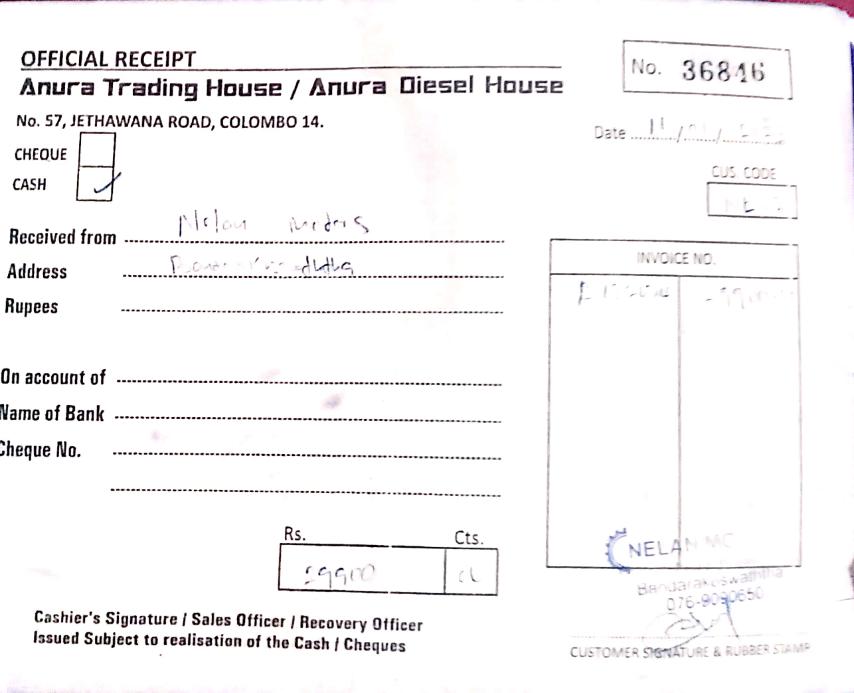 OFFICIAL RECEIPT
Anura Trading House / Anura Diesel House
No. 57, JETHAWANA ROAD, COLOMBO 14.
No. 36846
Date 11/
CHEQUE
CASH ✓
CUS. CODE
Received from Nelan Motors
Address
Rupees
INVOICE NO.
On account of
Name of Bank
Cheque No.
Rs. Cts.
NELAN MC
Bandarakoswaththa
076-9090650
Cashier's Signature / Sales Officer / Recovery Officer
Issued Subject to realisation of the Cash / Cheques
CUSTOMER SIGNATURE & RUBBER STAMP